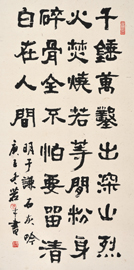 千錘萬鑿出深山烈
火焚燒若等閒粉身
碎骨全不怕要留清
白在人間
明于謙石灰吟
書